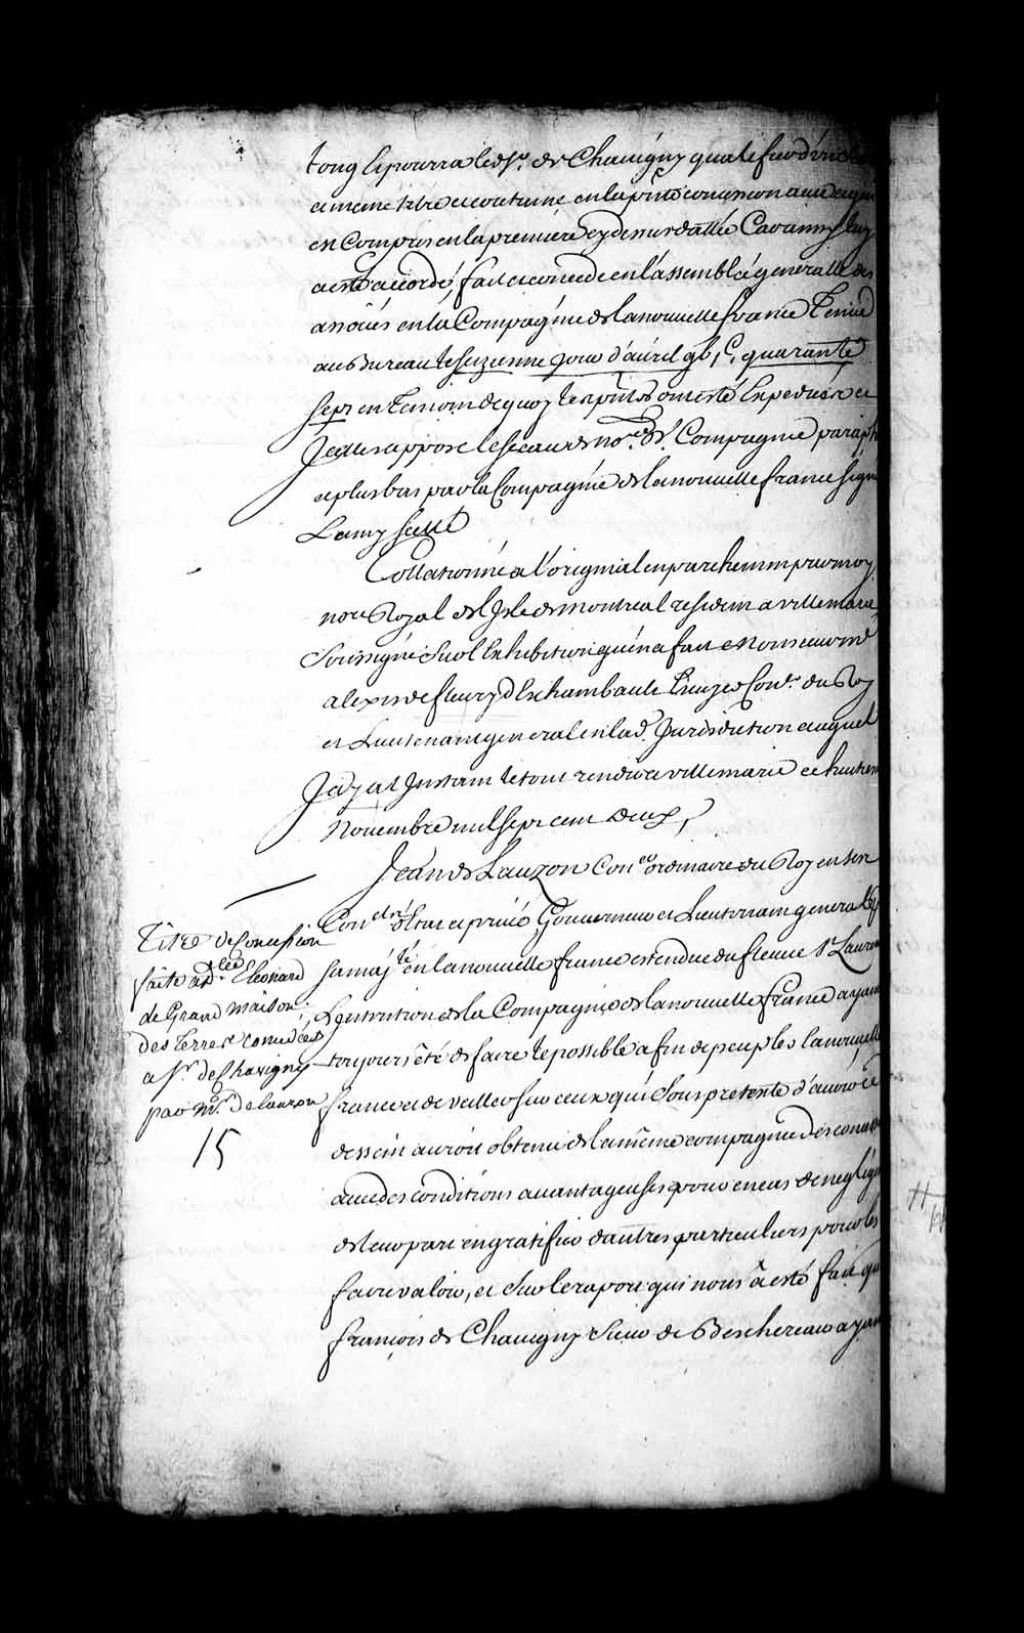 long Et pourra led. Sr. de Chauigny qualifier
a meme titre et coutume en la pnte concession
en Compris en la premiere cy dessus datteé Car ainsy luy
a esté accordé, fait et concedé en l'assembleé generalle des
associés en la Compagnie de la nouuelle france Tenüe
au Bureau le seizieme jour d'auril gbi C. quarante
sept en Temoin de quoy les pntes ont esté Expedieés et
Jcelles apposé le sceau de nore. d. Compagnie
et plus bas par la Compagnie de la nouuelle france signé
Lamy scellé
Collationné a l'original en parchemin par moy
nore Royal de l'Jsle de montreal residant a villemarie
soussigné sur l'exhibition qu'en a fait Monsieur me
alexis de fleury d'Eschambault Conr. du Roy
et Lieutenant general en lad. Jurisdiction auquel
J'ay a l'Jnstant le tout rendu a villemarie ce
Nouembre mil sept cent deux,
Jean de Lauzon Coner ordinaire du Roy en son
Conel d'estat et priué Gouuerneur et Lieutenant general
sa majté en la nouuelle france estendue du fleuue St Laurens
L'jntention de la Compagnie de la nouuelle france ayant
toujours été de faire le possible afin de peupler la nouuelle
france et de veiller sur ceux qui sous pretexte d'auoir ce
dessein auroit obtenu de la même compagnie des
auec des conditions auantageuses
de leur part en gratifier d'autres particuliers pour les
faire valoir, et sur le raport qui nous a esté fait que
françois de Chauigny sieur de Berchereau ayant
Titre de Concession
faite a Dlle Eleonard
de Grand maison
des terres concedées
a Sr. de Chavigny
par Mr. de lauzon
15